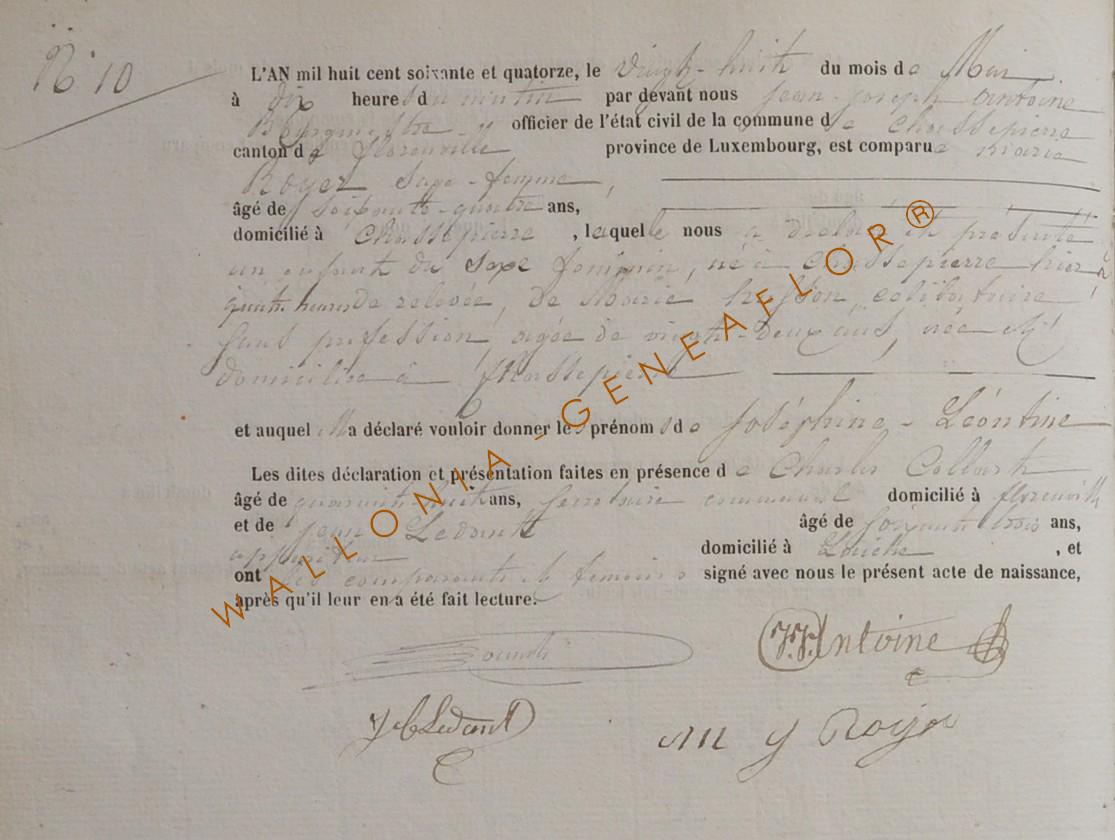 N° 10
L'AN mil huit cent soixante et quatorze, le vingt-huit du mois de Mai
à dix heures du matin par devant nous Jean-Joseph Antoine
Bourgmestre officier de l'état civil de la commune de Chassepierre
canton de Florenville province de Luxembourg, est comparue Marie
Royer Sage-femme,
âgé de soixante-quatre ans,
domicilié à Chassepierre, laquelle nous a déclaré et présenté
un enfant du sexe féminin, né à Chassepierre hier à
heures de relevée, de Marie Husson, célibataire
sans profession âgée de vingt-deux ans, née et
domiciliée à Chassepierre
et auquel a déclaré vouloir donner les prénoms de Joséphine-Léontine
Les dites déclaration et présentation faites en présence de Charles Collart
âgé de quarante-huit ans, Secrétaire communal domicilié à florenville
et de Jean Ledant âgé de soixante trois ans,
domicilié à, et
ont les comparants et témoins signé avec nous le présent acte de naissance,
après qu'il leur en a été fait lecture.
J.J. Antoine
Ledant
M J Royer
WALLONIA-GENEAFLOR®